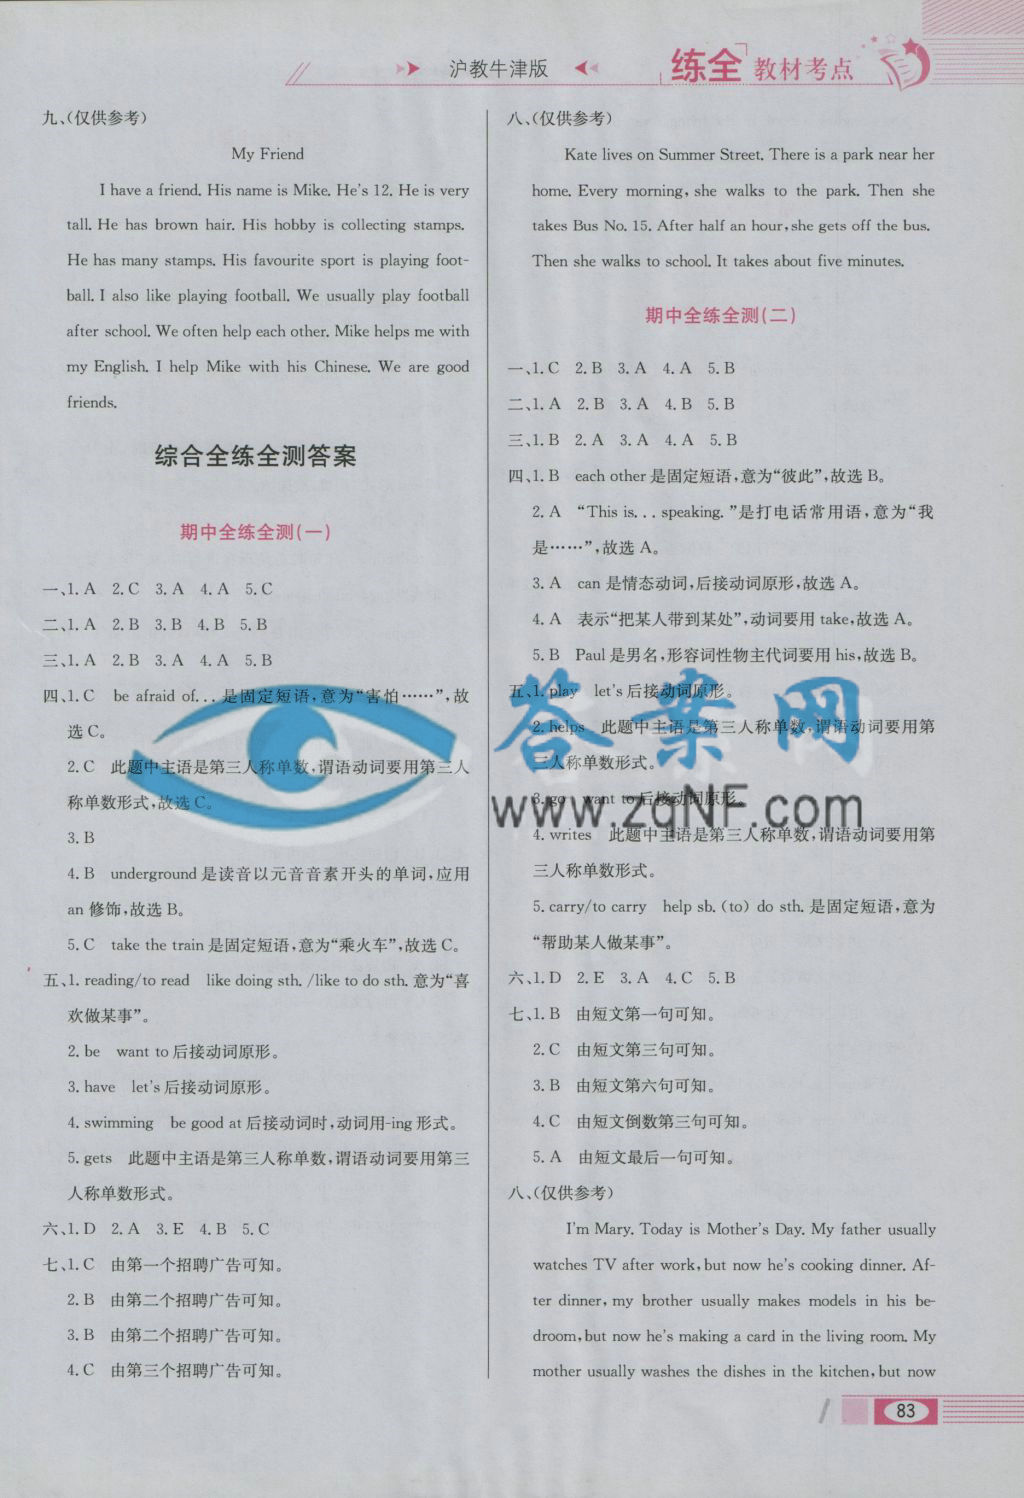 沪教牛津版
练全 教材考点
九、(仅供参考)
My Friend
I have a friend. His name is Mike. He's 12. He is very
tall. He has brown hair. His hobby is collecting stamps.
He has many stamps. His favourite sport is playing foot-
ball. I also like playing football. We usually play football
after school. We often help each other. Mike helps me with
my English. I help Mike with his Chinese. We are good
friends.
综合全练全测答案
期中全练全测(一)
一、1. A 2. C 3. A 4. A 5. C
二、1. A 2. B 3. B 4. B 5. B
三、1. A 2. B 3. A 4. A 5. B
四、1. C be afraid of... 是固定短语,意为“害怕……”,故
选 C。
2. C 此题中主语是第三人称单数,谓语动词要用第三人
称单数形式,故选 C。
3. B
4. B underground 是读音以元音音素开头的单词,应用
an 修饰,故选 B。
5. C take the train 是固定短语,意为“乘火车”,故选 C。
五、1. reading/to read like doing sth. /like to do sth. 意为“喜
欢做某事”。
2. be want to 后接动词原形。
3. have let's 后接动词原形。
4. swimming be good at 后接动词时,动词用-ing 形式。
5. gets 此题中主语是第三人称单数,谓语动词要用第三
人称单数形式。
六、1. D 2. A 3. E 4. B 5. C
七、1. C 由第一个招聘广告可知。
2. B 由第二个招聘广告可知。
3. B 由第二个招聘广告可知。
4. C 由第三个招聘广告可知。
八、(仅供参考)
Kate lives on Summer Street. There is a park near her
home. Every morning, she walks to the park. Then she
takes Bus No. 15. After half an hour, she gets off the bus.
Then she walks to school. It takes about five minutes.
期中全练全测(二)
一、1. C 2. B 3. A 4. A 5. B
二、1. A 2. B 3. A 4. B 5. B
三、1. B 2. A 3. A 4. A 5. B
四、1. B each other 是固定短语,意为“彼此”,故选 B。
2. A “This is... speaking. ”是打电话常用语,意为“我
是……”,故选 A。
3. A can 是情态动词,后接动词原形,故选 A。
4. A 表示“把某人带到某处”,动词要用 take,故选 A。
5. B Paul 是男名,形容词性物主代词要用 his,故选 B。
五、1. play let's 后接动词原形。
2. helps 此题中主语是第三人称单数,谓语动词要用第
三人称单数形式。
3. go want to 后接动词原形。
4. writes 此题中主语是第三人称单数,谓语动词要用第
三人称单数形式。
5. carry/to carry help sb. (to) do sth. 是固定短语,意为
“帮助某人做某事”。
六、1. D 2. E 3. A 4. C 5. B
七、1. B 由短文第一句可知。
2. C 由短文第三句可知。
3. B 由短文第六句可知。
4. C 由短文倒数第三句可知。
5. A 由短文最后一句可知。
八、(仅供参考)
I'm Mary. Today is Mother's Day. My father usually
watches TV after work, but now he's cooking dinner. Af-
ter dinner, my brother usually makes models in his be-
droom, but now he's making a card in the living room. My
mother usually washes the dishes in the kitchen, but now
83
答案网
www.zqNF.com